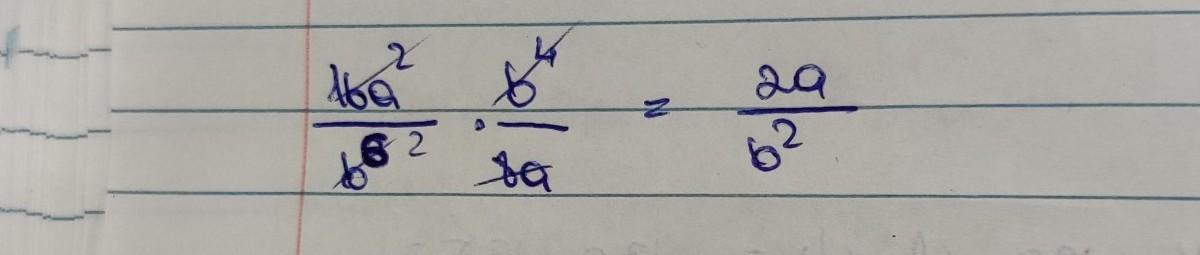 16a² / b⁶ ² · b⁴ / 8a = 2a / b²